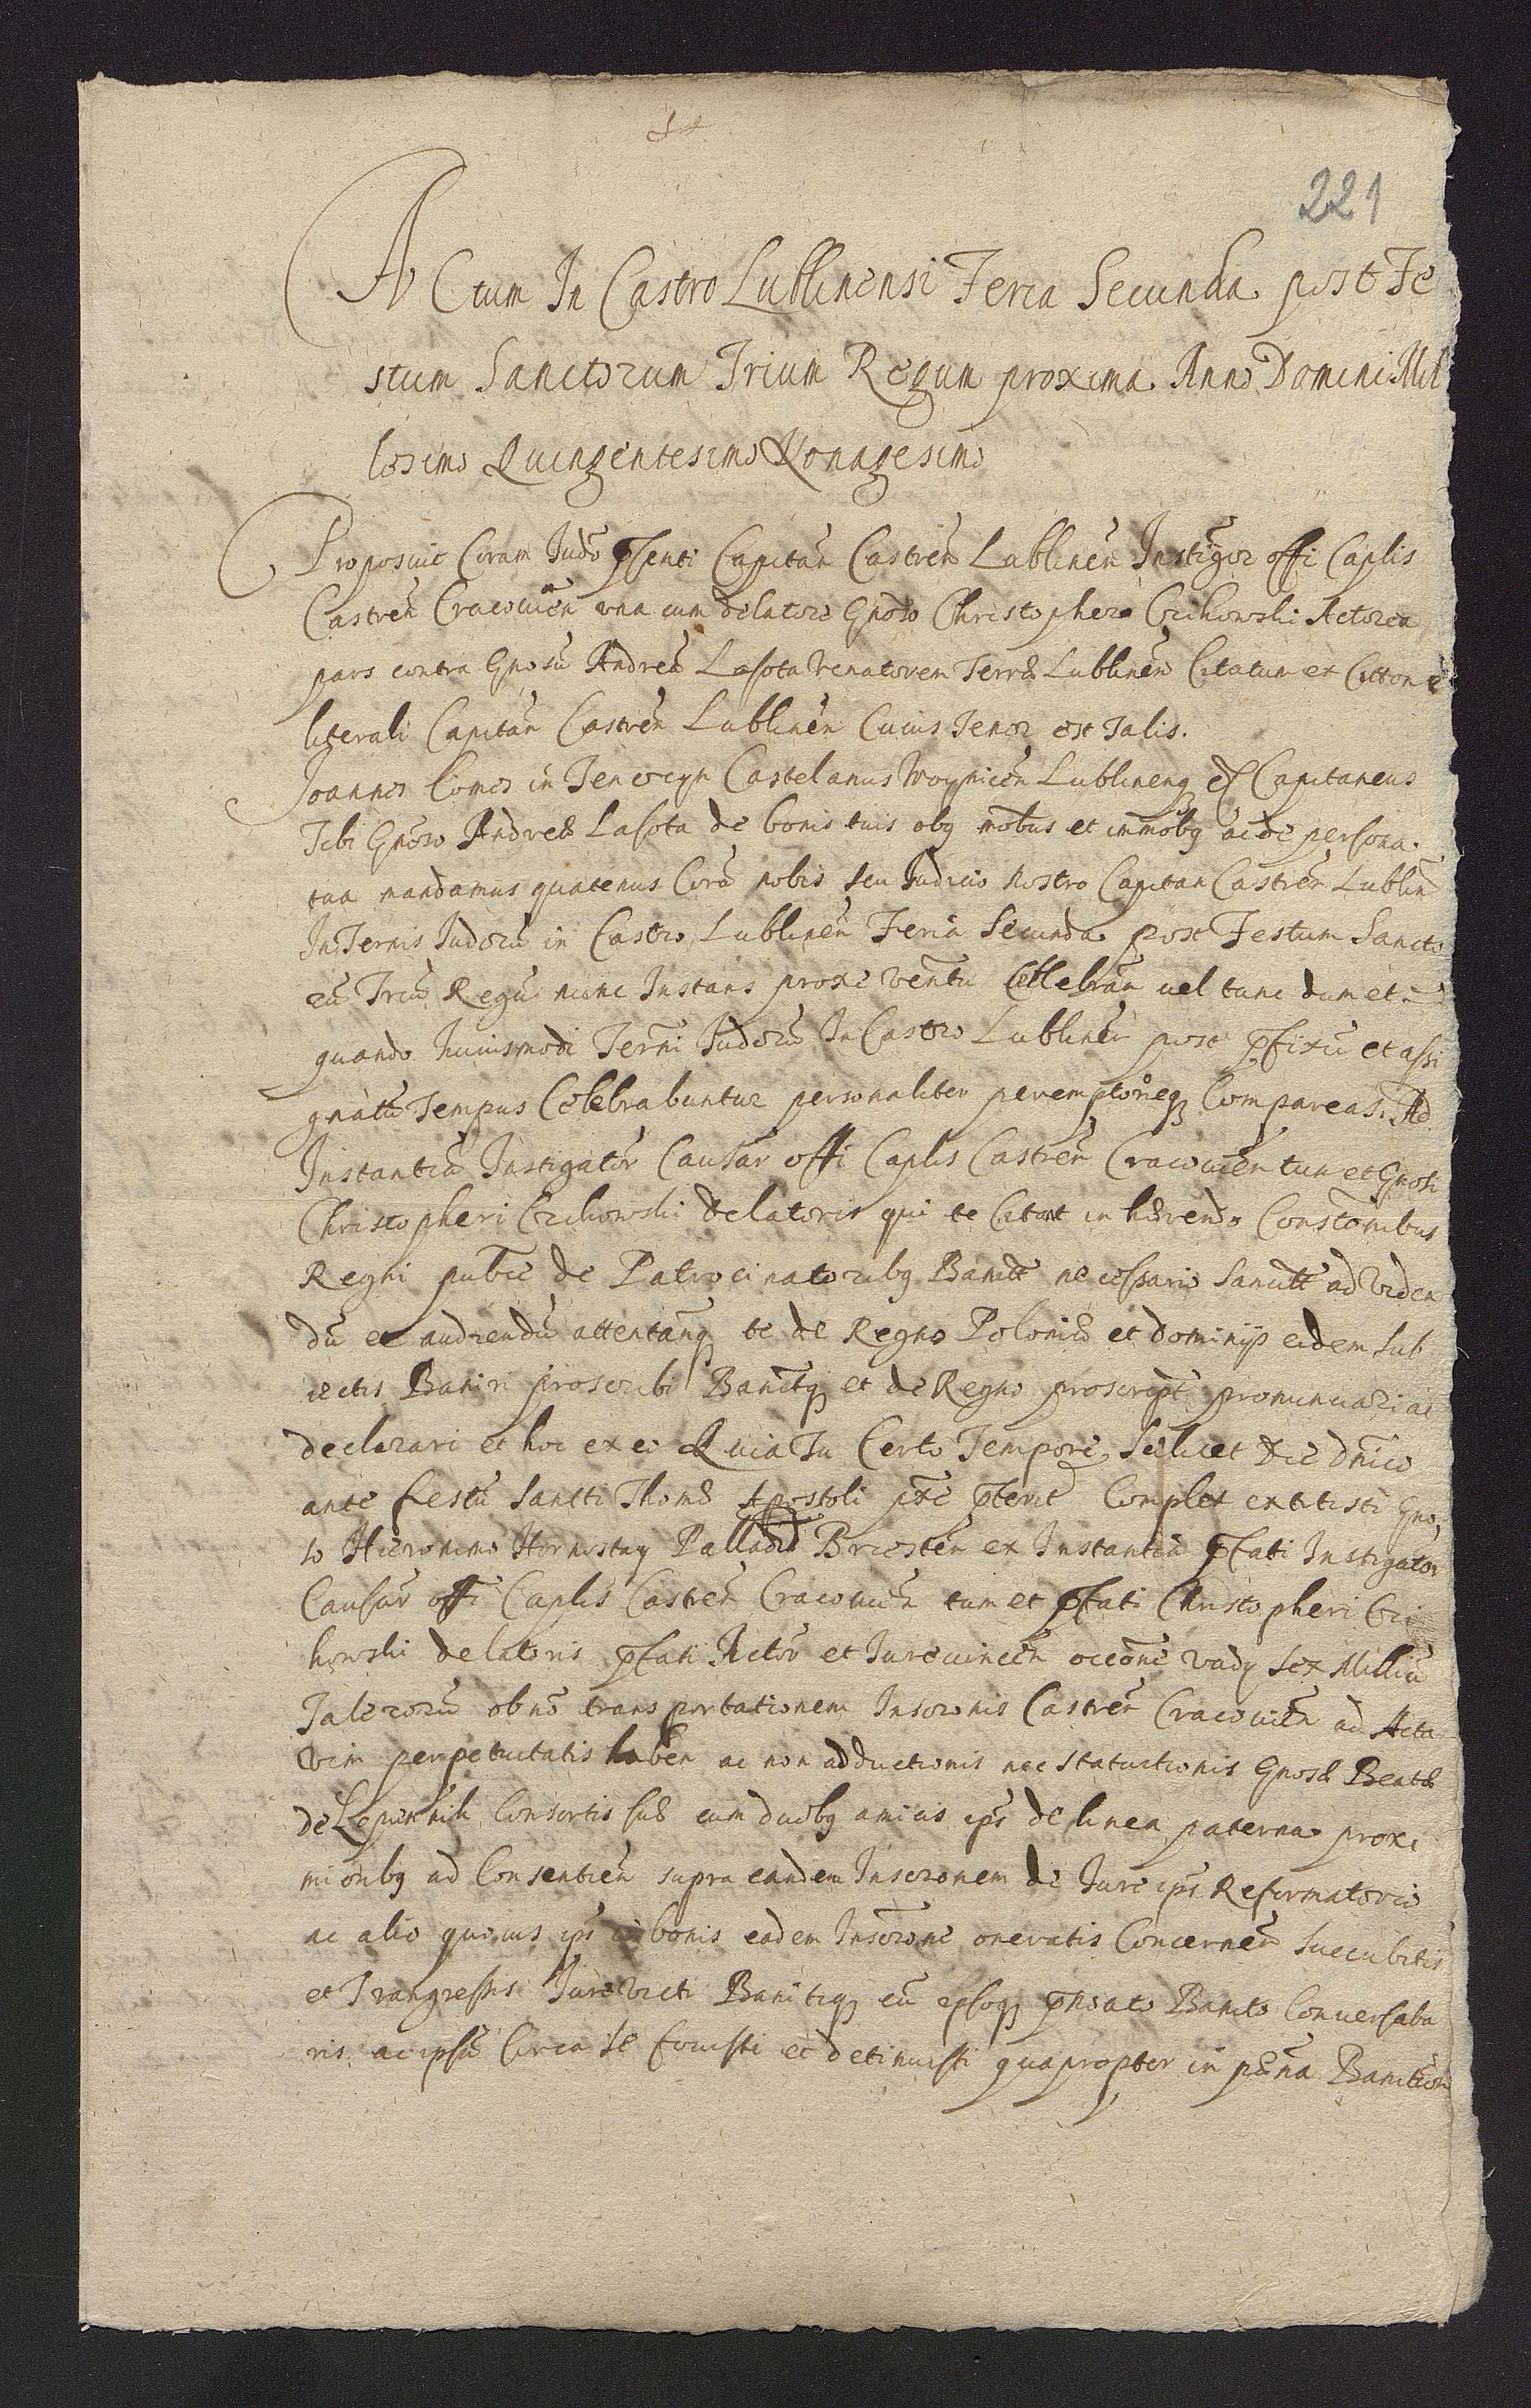 221
Actum In Castro Lublinensi Feria Secunda post Fe
stum Sanctorum Trium Regum proxima Anno Domini Mil
lesimo Quingentesimo Nonagesimo
Proposuit Coram Judō p̄senti Capitan̄ Castren̄ Lublinen̄ Instigōr offi Caplis
Castren̄ Cracouien̄ vna cum delatore Gnōso Christophero Czikowski Actorea
pars contra Gnosū Andreā Lasota Venatorem Terræ Lublinen̄ Citatum ex Citton̄e
literali Capitan̄ Castren̄ Lublinen̄ Cuius Tenor est Talis.
Joannes Comes in Tenczyn Castelanus Woynicen̄ Lublinenq̨ Capitaneus
Tibi Gnōso Andreæ Lasota de bonis tuis obq̨ mōbus et immōbq̨ ac de persona
tua mandamus quatenus Corā nobis seu Judicio Nostro Capitan Castren̄ Lublin̄
In Ternis Judorū in Castro Lublinen̄ Feria Secunda post Festum Sancto
rū Triū Regū nunc Instans proxe ventū Cellebran̄ uel tunc dum et
quando huiusmodi Termi̅ Judorū In Castro Lublinen̄ post p̄fixū et assi
gnatū Tempus Celebrabuntur personaliter peremptorieq̨ Compareas. Ad
Instantiā Instigator̄ Causar̄ offi Caplis Castren̄ Cracouien̄ tum et Gnosi
Christopheri Czikowski delatoris qui te Citant inhærendo Constōnibus
Regni pub̄ce de Patrocinatoribq̨ Bannitt necessario Sancitt ad viden
dū et audiendū attentanq̨ te de Regno Poloniæ et dominijs eidem sub
iectis Baniri proscribi Banitq̨ et de Regno proscript pronunciari ac
declarari et hoc ex eo Quia Tu Certo Tempore Scilicet die dnīco
ante festū Sancti Thomæ Apostoli pxe p̄terit Complex extitisti Gno
so Hieronimo Hornostay Palladio Briesten̄ ex Instantia p̄fati Instigator
Causar̄ offi Caplis Castren̄ Cracouien̄ tum et p̄fati Christopheri Czi
kowski delatoris p̄fati Actor̄ et Jure vincen̄ occōne vady sex Milliū
Talerorū ob nō transportationem Inscronis Castren̄ Cracouien̄ ad Acta
vim perpetuitatis haben̄ ac non adductionis nec statuitionis Gnosæ Beatæ
de Lopiennik Consortis suæ cum duobq̨ amicis ips̄ de linea paterna proxi
mioribq̨ ad Consentien̄ supra eandem Inscronem de Jure ips̄ Reformatorio
ac alio quouis ips̄ in bonis eadem Inscrōne oneratis Concernen̄ Succubitis
et Trangressis Jure victi Banitiq̨ cū ipsoq̨ p̄nōato Banito Conuersaba
ris ac ipsū Circa se fouisti et detinuisti quapropter in pœna Banitiōn